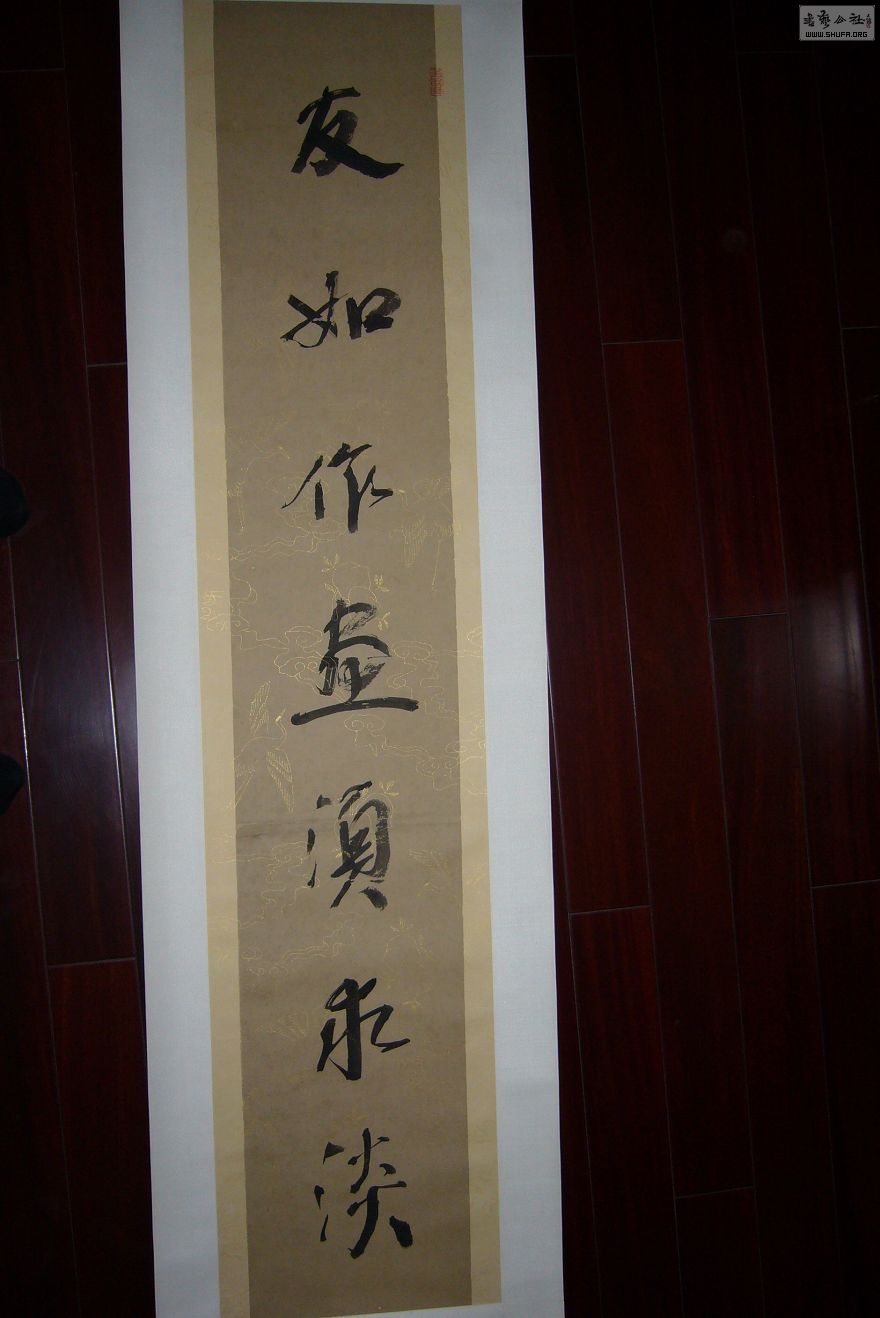 友如作画須求淡
書藝公社
WWW.SHUFA.ORG